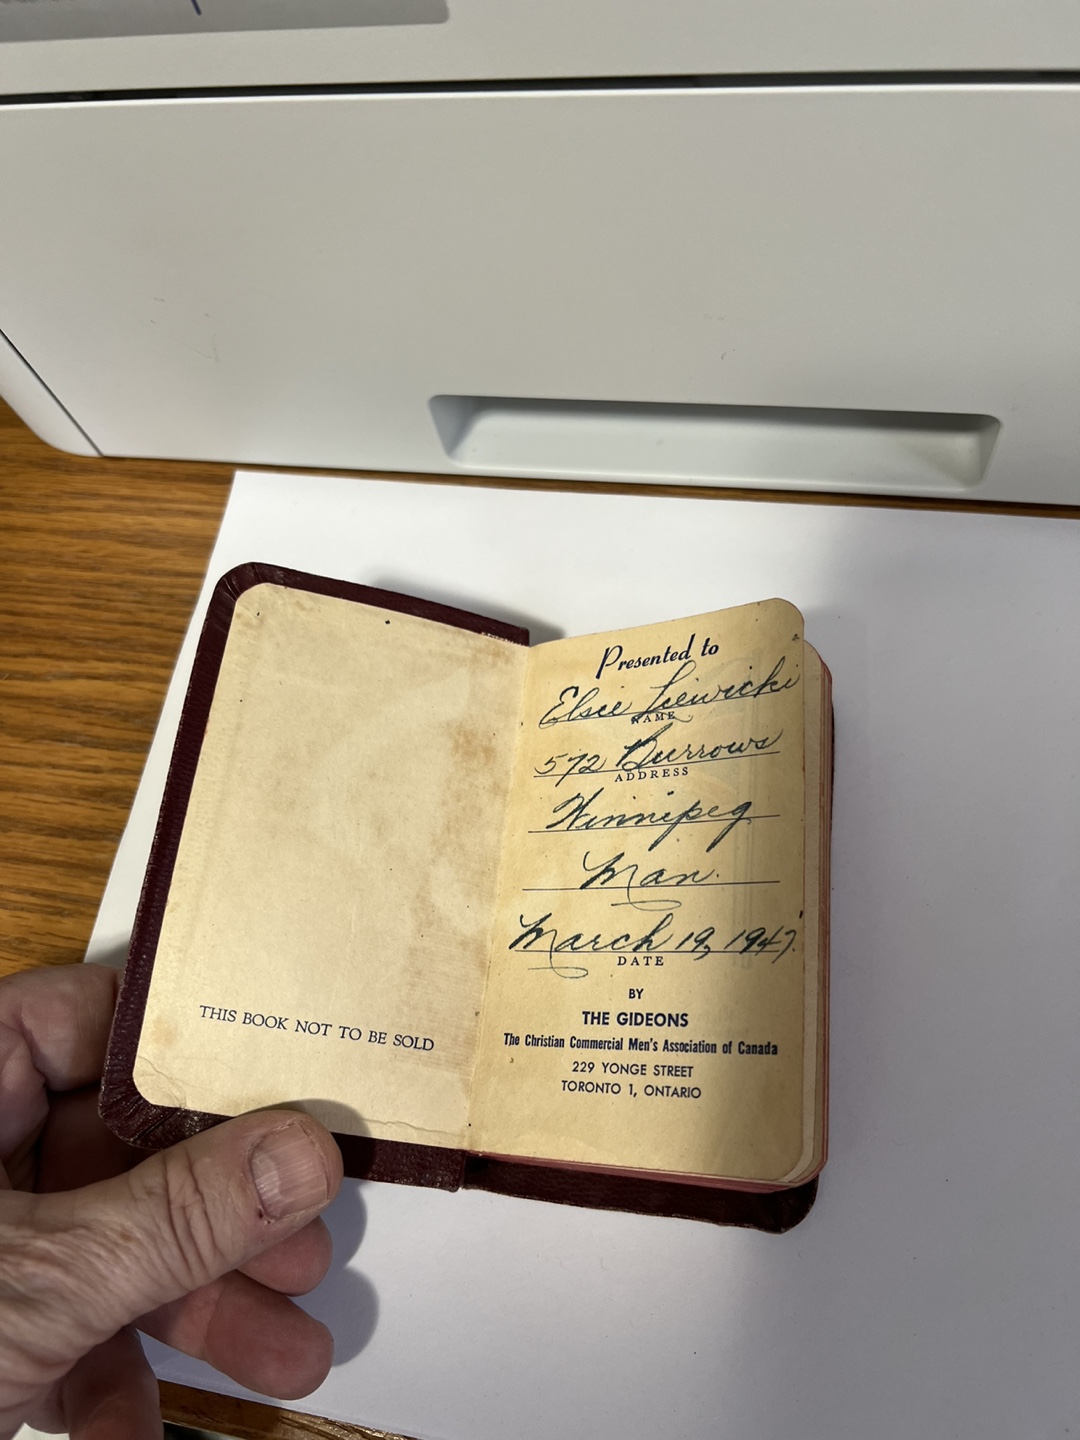 THIS BOOK NOT TO BE SOLD
Presented to
Elsie Lewicki
NAME
572 Burrows
ADDRESS
Winnipeg
Man.
March 19, 1947.
DATE
BY
THE GIDEONS
The Christian Commercial Men's Association of Canada
229 YONGE STREET
TORONTO 1, ONTARIO